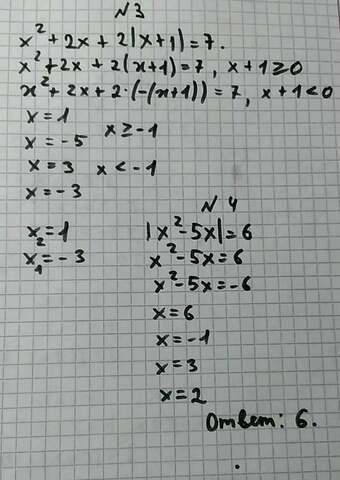 N 3
x² + 2x + 2|x+1| = 7.
x² + 2x + 2(x+1) = 7, x+1 ≥ 0
x² + 2x + 2·(-(x+1)) = 7, x+1 < 0
x = 1
x = -5 x ≥ -1
x = 3 x < -1
x = -3
x₂ = 1
x₁ = -3
N 4
|x² - 5x| = 6
x² - 5x = 6
x² - 5x = -6
x = 6
x = -1
x = 3
x = 2
Ответ: 6.